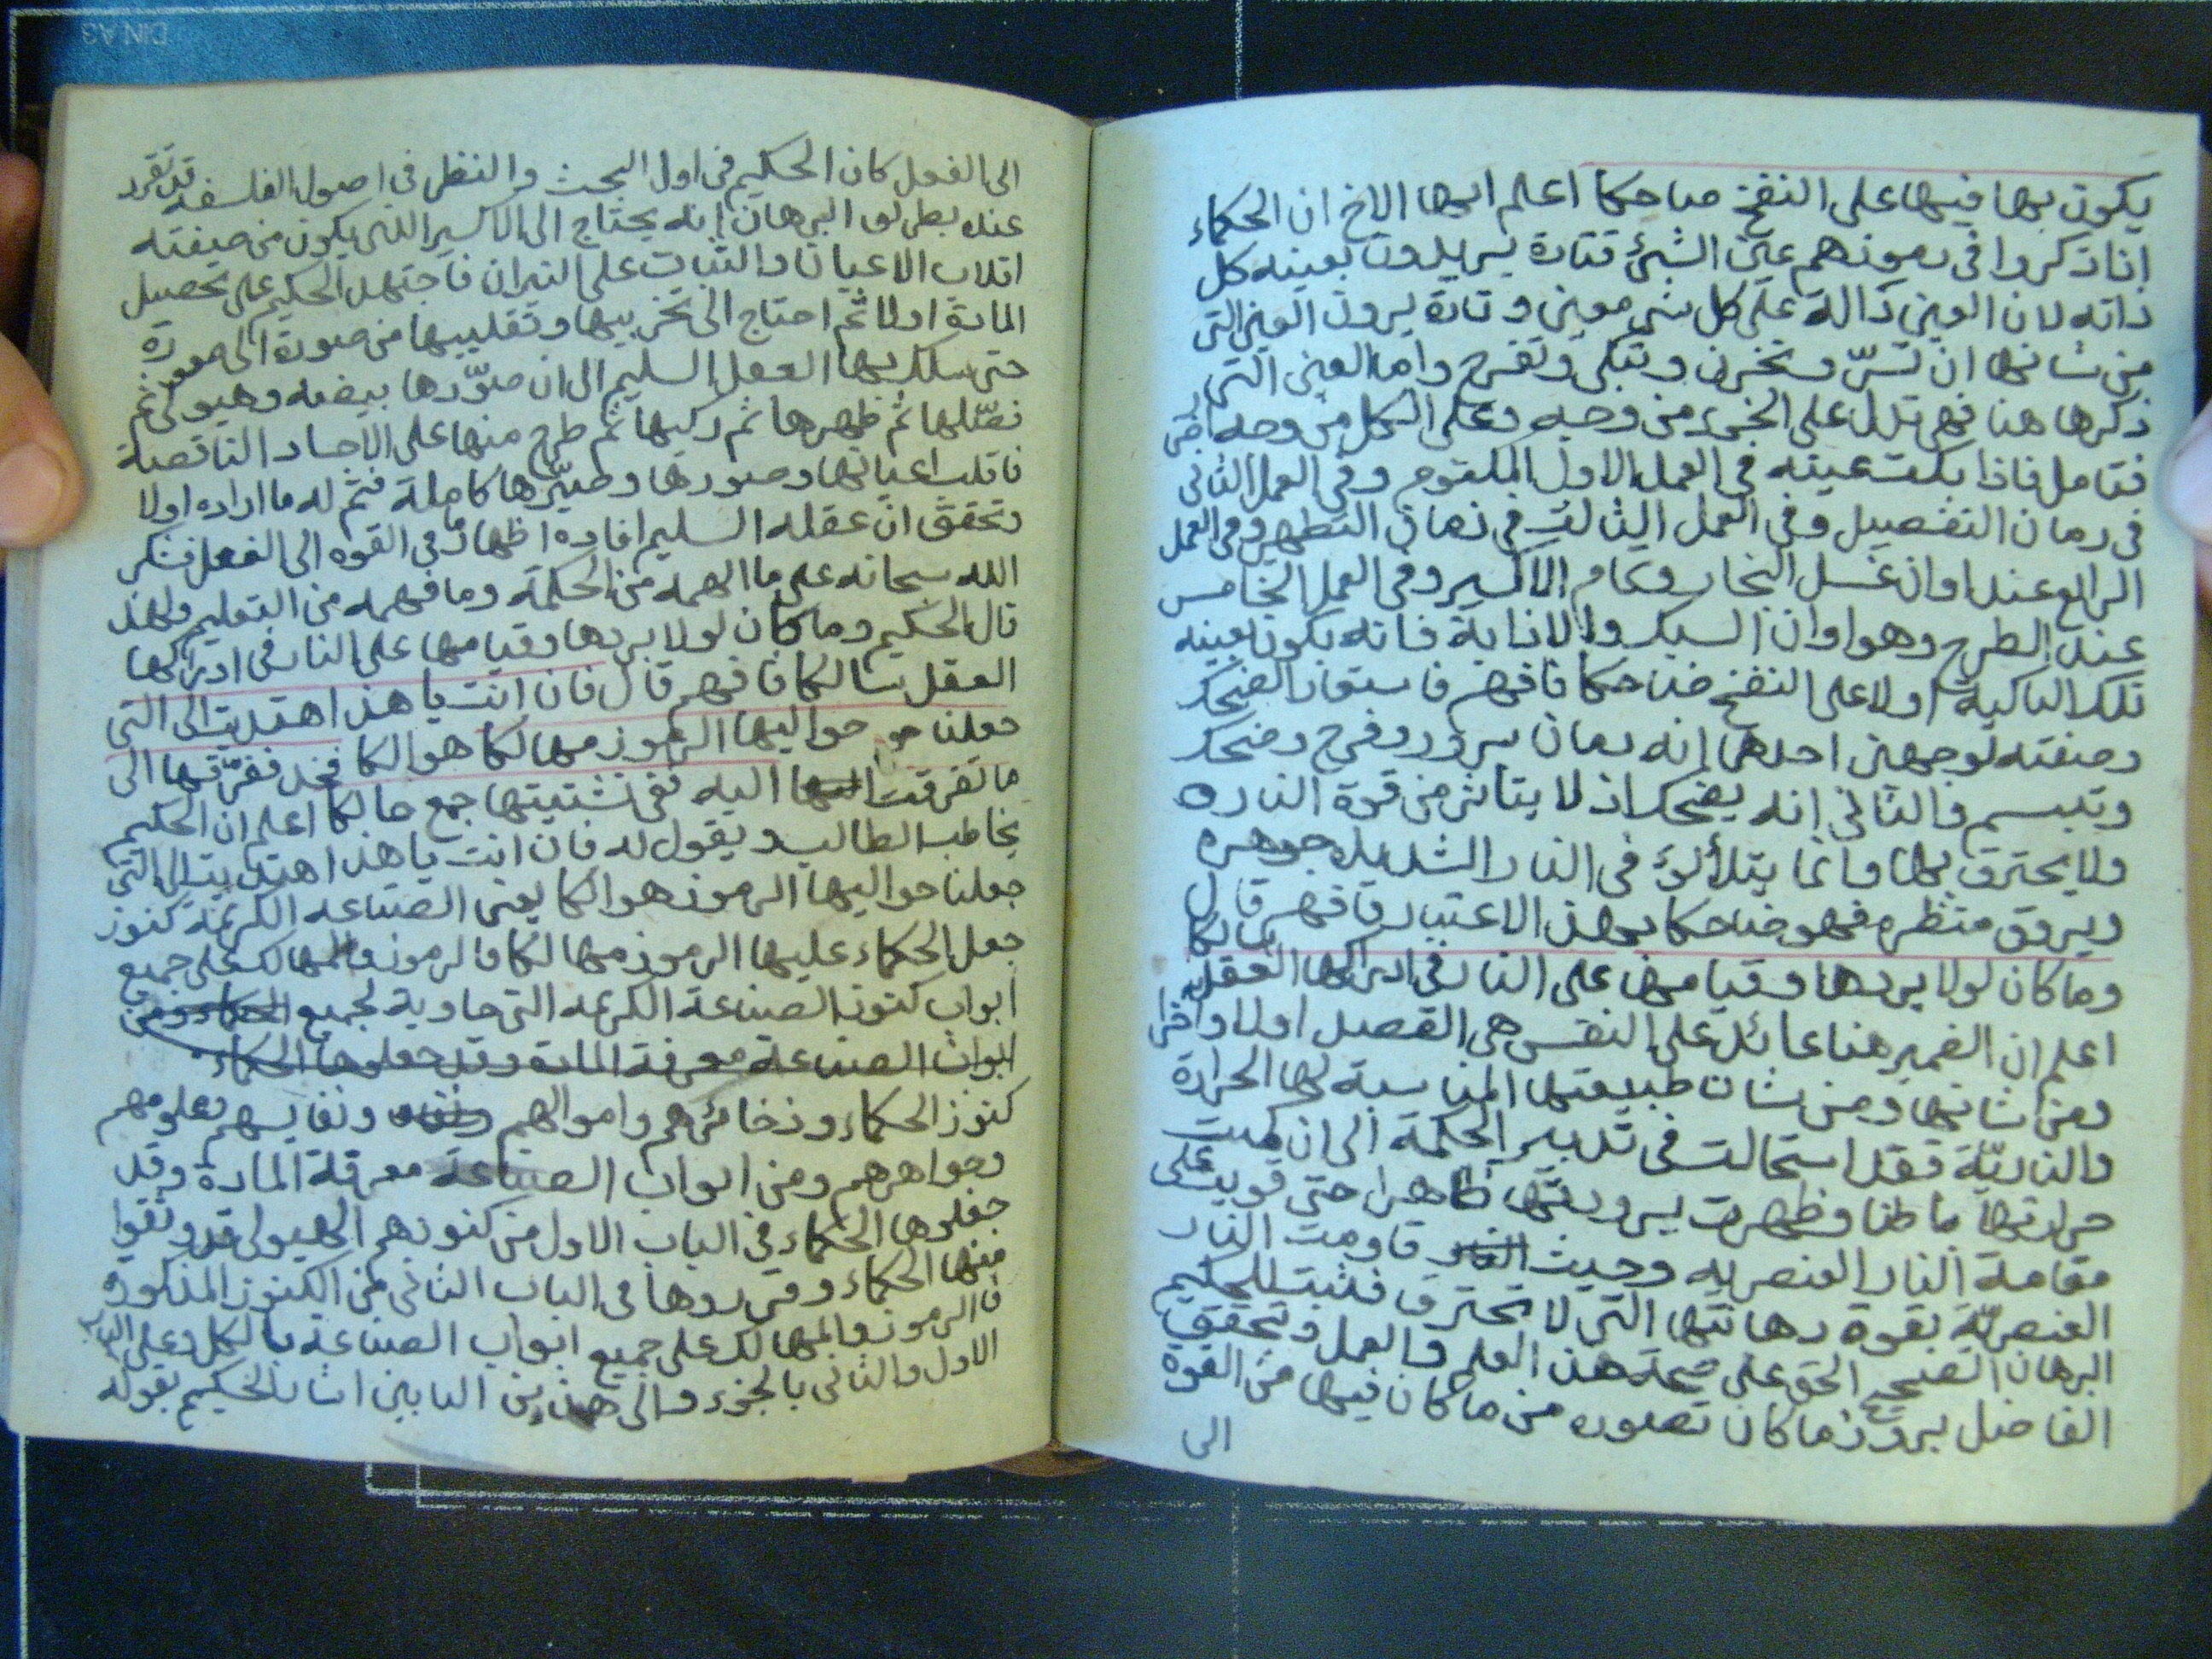 يكون بها فيها على النفخ ضاحكا اعلم ايها الاخ ان الحكماء
اذا ذكروا في رموزهم عين الشئ فتارة يريدون بعينه كل
ذاته لان العين دالة على كل شي معين وتارة يرون العين التي
من شانها ان تسرّ وتحزن وتبكى وتفرح واما العين التي
ذكرها هنا فهي تدل على الجزء من وجه وعلى الكل من وجه اخر
فتامل فاذا بكت عينه في العمل الاول المكتوم وفي العمل الثاني
في زمان التفصيل وفي العمل الثالث في زمان التطهير وفي العمل
الرابع عند اوان غسل النحاس وتمام الاكسير وفي العمل الخامس
عند الطرح وهو اوان السبك والاذابة فانه يكون بعينه
تلك الباكية اولا على النفخ ضاحكا فافهم فاستعار الضحك
وصفته لوجهين احدهما انه زمان سرور وفرح وضحك
وتبسم والثاني انه يضحك اذ لا يتاثر من قوة النار
ولا يحترق بها وانما يتلألؤ في النار الشديدة جوهره
ويروق منظره فهو ضاحكا بهذا الاعتبار فافهم قال
وما كان لولا بردها وقيامها على النار في ادراكها العقل سالكا
اعلم ان الضمير هنا عائد على النفس هي الفصل اولا واخرا
ومن شانها ومن شان طبيعتها المناسبة لها الحرارة
والناريّة فقد استحالت في تدبير الحكمة الى ان كمنت
حرارتها باطنا وظهرت برودتها ظاهرا حتى قويت على
مقامة النار العنصريه وحيث قاومت النار
العنصريّة بقوة دهانتها التي لا تحترق فثبت للحكيم
البرهان الصحيح الحق على صحة هذا العلم والعمل وتحقق
الفاضل بروز ما كان تصوره من ما كان فيها من القوة
الى
الى الفعل كان الحكيم في اول البحث والنظر في اصول الفلسفه قد تقرر
عنده بطريق البرهان انه يحتاج الى الاكسير الذي يكون من صفته
اقلاب الاعيان والثبات على النيران فاجتهد الحكيم على تحصيل
المادة اولا ثم احتاج الى تخريبها وتقليبها من صورة الى صورة
حتى سلك بها العقل السليم الى ان صوّرها بيضه وهيولى ثم
فصّلها ثم طهرها ثم ركبها ثم طرح منها على الاجساد الناقصة
فاقلب اعيانها وصورها وصيّرها كاملة فتم له ما اراده اولا
وتحقق ان عقله السليم افاده اظهار ما في القوه الى الفعل فشكر
الله سبحانه على ما الهمه من الحكمة وما فهمه من التعليم ولهذا
قال الحكيم وما كان لولا بردها وقيامها على النار في ادراكها
العقل سالكا فافهم قال فان انت يا هذا اهتديت الى التي
جعلنا حواليها الرموز مهالكا هوالكا فخذ ففرّقها الى
ما تفرقت اليه ففي تشتيتها جمع حالكا اعلم ان الحكيم
يخاطب الطالب ويقول له فان انت يا هذا اهتديت الى التي
جعلنا حواليها الرموز هوالكا يعني الصناعه الكريمة كنوز
جعل الحكماء عليها الرموز مهالكا فالرموز والمهالك على جميع
ابواب كنوز الصناعة الكريمه التي حاوية لجميع
ابواب الصناعة معرفة المادة وقد جعلوها الحكماء
كنوز الحكماء وذخائرهم واموالهم ونفايسهم بعلومهم
وجواهرهم ومن ابواب الصناعة معرفة المادة وقد
جعلوها الحكماء في الباب الاول من كنوزهم الهيولى قد وثقوا
منها الحكماء وقرروها في الباب الثاني من الكنوز المذكوره
فالرموز والمهالك على جميع ابواب الصناعة بالكل وعلى الباب
الاول والثاني بالجزء والى هذين البابين اشار الحكيم بقوله